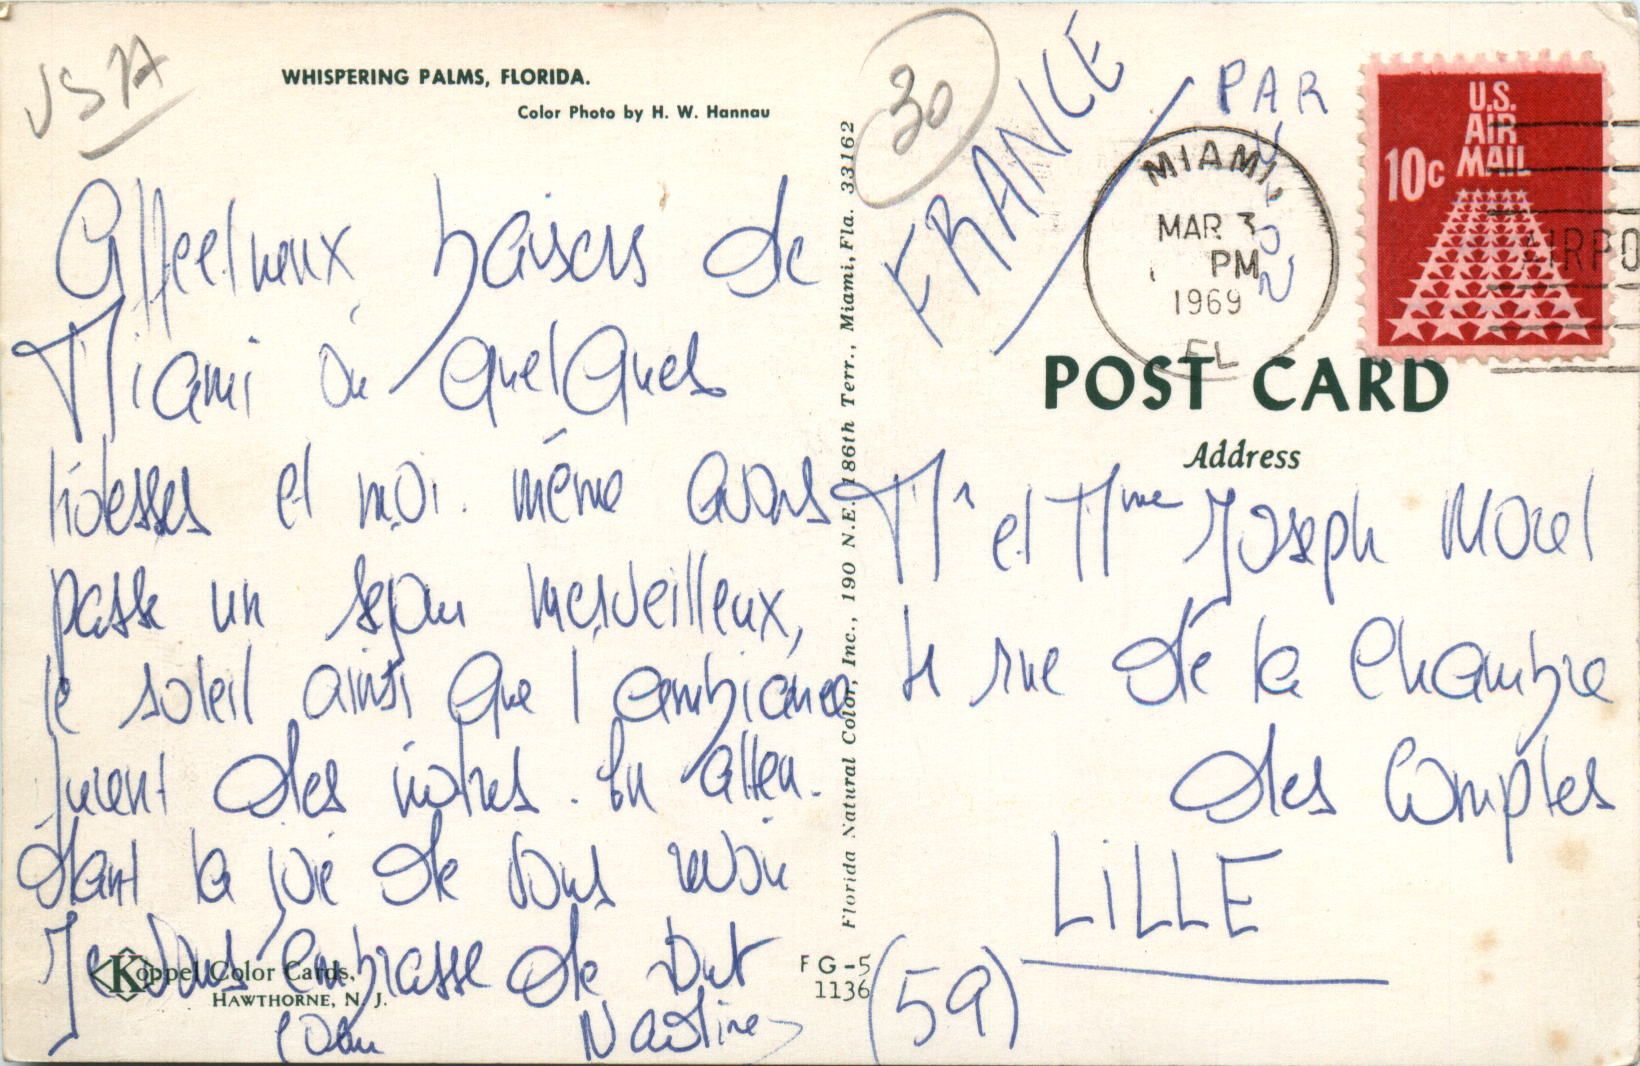 USA
WHISPERING PALMS, FLORIDA.
Color Photo by H. W. Hannau
Affectueux baisers de
Miami où quelques
hôtesses et moi. même avons
passé un séjour merveilleux,
le soleil ainsi que l ambiance
furent des nôtres. En atten.
dant la joie de vous revoir
Je vous embrasse de tout
cœur
Koppel Color Cards,
HAWTHORNE, N. J.
Florida Natural Color, Inc., 190 N.E. 186th Terr., Miami, Fla. 33162
FG-5
1136
30
FRANCE
PAR
AVION
MIAMI,
MAR 3
PM
1969
FL
U.S.
AIR
MAIL
10c
AIRPO
POST CARD
Address
Mr et Mme Joseph Morel
4 rue de la Chambre
des Comptes
LiLLE
(59)